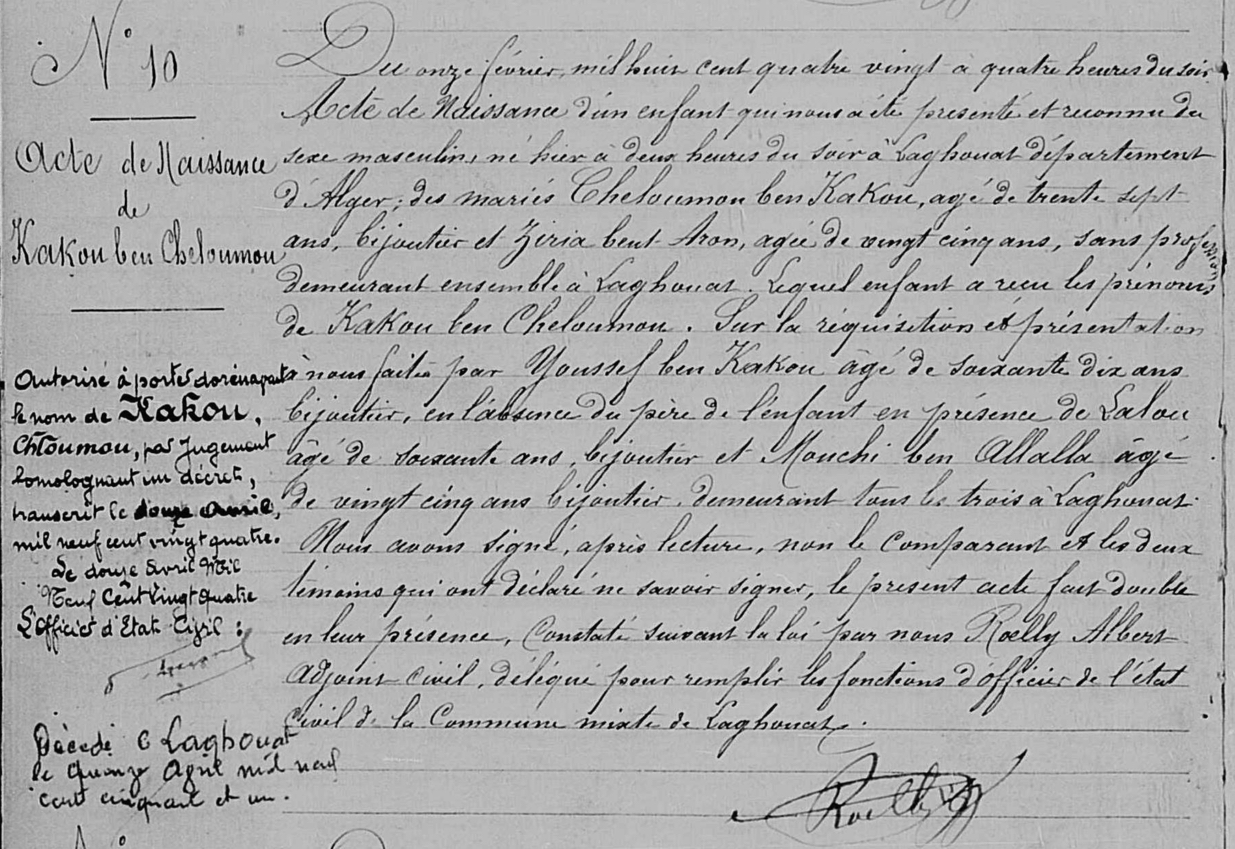 N° 10
Acte de Naissance
de
Kakou ben Cheloumou
Autorisé à porter dorénavant
le nom de Kakou,
Chloumou, par Jugement
homologuant un décret,
transcrit le douze Avril,
mil neuf cent vingt quatre.
Le douze Avril Mil
Neuf Cent Vingt Quatre
L'Officier d'Etat Civil :
Décédé à Laghouat
le quinze April mil neuf
cent cinquant et un.
Du onze février, mil huit cent quatre vingt à quatre heures du soir
Acte de Naissance d'un enfant qui nous a été présenté et reconnu du
sexe masculin, né hier à deux heures du soir à Laghouat département
d'Alger, des mariés Cheloumou ben Kakou, agé de trente sept
ans, bijoutier et Ziria bent Aron, agée de vingt cinq ans, sans profession
demeurant ensemble à Laghouat. Lequel enfant a reçu les prénoms
de Kakou ben Cheloumou. Sur la réquisition et présentation
à nous faites par Youssef ben Kakou âgé de soixante dix ans
bijoutier, en l'absence du père de l'enfant en présence de Lalou
âgé de soixante ans, bijoutier et Mouchi ben Allalla âgé
de vingt cinq ans bijoutier, demeurant tous les trois à Laghouat.
Nous avons signé, après lecture, non le comparant et les deux
témoins qui ont déclaré ne savoir signer, le present acte fait double
en leur présence, Constaté suivant la loi par nous Roelly Albert
Adjoint civil, délégué pour remplir les fonctions d'officier de l'état
civil de la Commune mixte de Laghouat.
Roelly